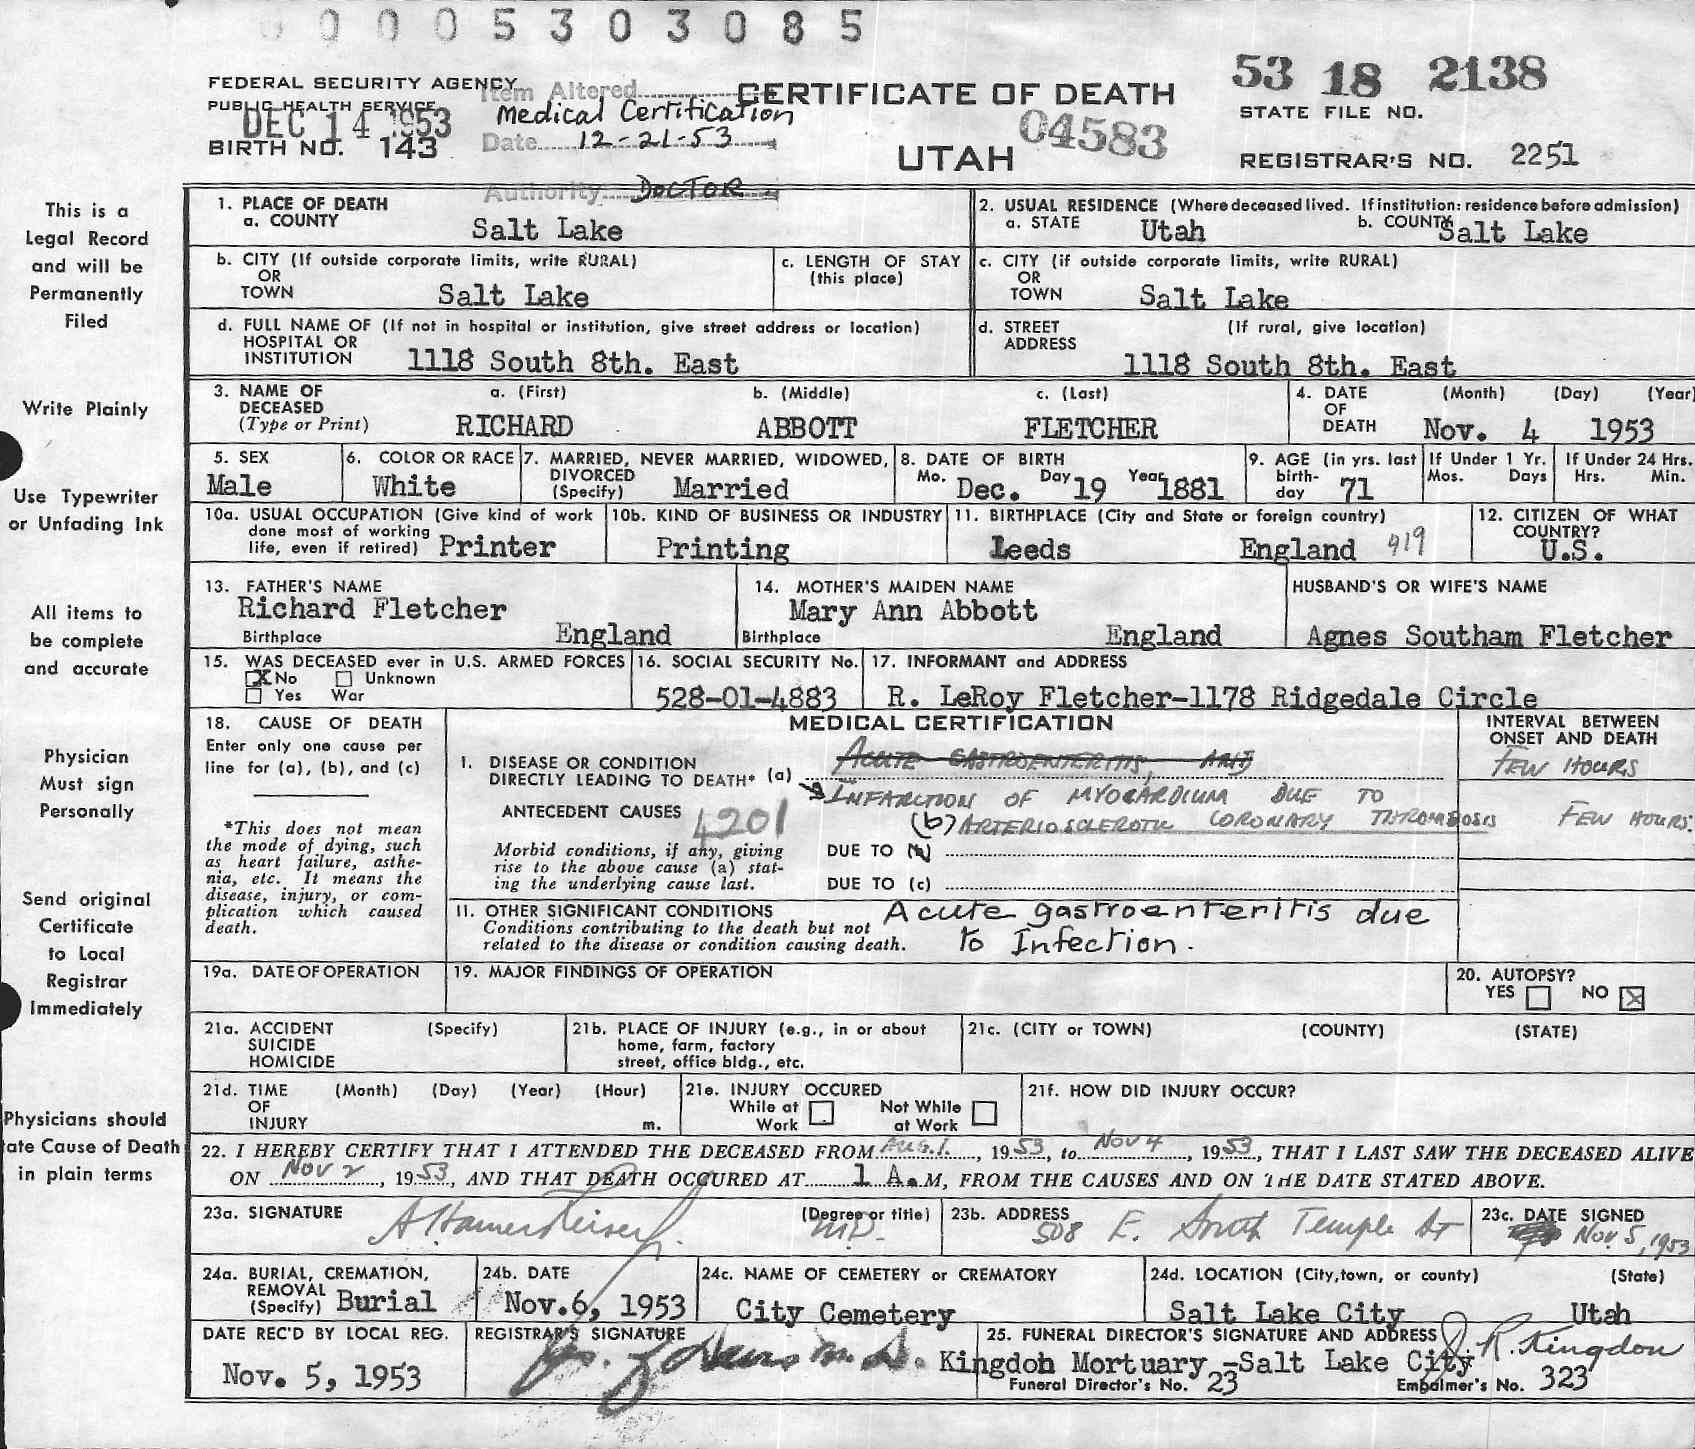 0 0 0 0 5 3 0 3 0 8 5
FEDERAL SECURITY AGENCY
PUBLIC HEALTH SERVICE
DEC 14 1953
BIRTH NO. 143
Item Altered
Medical Certification
Date 12-21-53
Authority DOCTOR
CERTIFICATE OF DEATH
UTAH
04583
53 18 2138
STATE FILE NO.
REGISTRAR'S NO. 2251
This is a
Legal Record
and will be
Permanently
Filed
Write Plainly
Use Typewriter
or Unfading Ink
All items to
be complete
and accurate
Physician
Must sign
Personally
Send original
Certificate
to Local
Registrar
Immediately
Physicians should
ate Cause of Death
in plain terms
1. PLACE OF DEATH
a. COUNTY Salt Lake
2. USUAL RESIDENCE (Where deceased lived. If institution: residence before admission)
a. STATE Utah b. COUNTY Salt Lake
b. CITY (If outside corporate limits, write RURAL)
OR
TOWN Salt Lake
c. LENGTH OF STAY
(this place)
c. CITY (if outside corporate limits, write RURAL)
OR
TOWN Salt Lake
d. FULL NAME OF (If not in hospital or institution, give street address or location)
HOSPITAL OR
INSTITUTION 1118 South 8th. East
d. STREET (If rural, give location)
ADDRESS
1118 South 8th. East
3. NAME OF a. (First) b. (Middle) c. (Last)
DECEASED
(Type or Print) RICHARD ABBOTT FLETCHER
4. DATE (Month) (Day) (Year)
OF
DEATH Nov. 4 1953
5. SEX
Male
6. COLOR OR RACE
White
7. MARRIED, NEVER MARRIED, WIDOWED,
DIVORCED
(Specify) Married
8. DATE OF BIRTH
Mo. Dec. Day 19 Year 1881
9. AGE (in yrs. last
birth-
day 71
If Under 1 Yr.
Mos. Days
If Under 24 Hrs.
Hrs. Min.
10a. USUAL OCCUPATION (Give kind of work
done most of working
life, even if retired) Printer
10b. KIND OF BUSINESS OR INDUSTRY
Printing
11. BIRTHPLACE (City and State or foreign country)
Leeds England 919
12. CITIZEN OF WHAT
COUNTRY?
U.S.
13. FATHER'S NAME
Richard Fletcher
Birthplace England
14. MOTHER'S MAIDEN NAME
Mary Ann Abbott
Birthplace England
HUSBAND'S OR WIFE'S NAME
Agnes Southam Fletcher
15. WAS DECEASED ever in U.S. ARMED FORCES
X No Unknown
Yes War
16. SOCIAL SECURITY No.
528-01-4883
17. INFORMANT and ADDRESS
R. LeRoy Fletcher-1178 Ridgedale Circle
18. CAUSE OF DEATH
Enter only one cause per
line for (a), (b), and (c)
*This does not mean
the mode of dying, such
as heart failure, asthe-
nia, etc. It means the
disease, injury, or com-
plication which caused
death.
MEDICAL CERTIFICATION
INTERVAL BETWEEN
ONSET AND DEATH
I. DISEASE OR CONDITION
DIRECTLY LEADING TO DEATH* (a) ACUTE GASTROENTERITIS, AND
FEW HOURS
INFARCTION OF MYOCARDIUM DUE TO
ANTECEDENT CAUSES 4201
(b) ARTERIOSCLEROTIC CORONARY THROMBOSIS FEW HOURS.
Morbid conditions, if any, giving
rise to the above cause (a) stat-
ing the underlying cause last.
DUE TO (b)
DUE TO (c)
11. OTHER SIGNIFICANT CONDITIONS
Conditions contributing to the death but not
related to the disease or condition causing death.
Acute gastroenteritis due
to Infection.
19a. DATE OF OPERATION
19. MAJOR FINDINGS OF OPERATION
20. AUTOPSY?
YES NO X
21a. ACCIDENT (Specify)
SUICIDE
HOMICIDE
21b. PLACE OF INJURY (e.g., in or about
home, farm, factory
street, office bldg., etc.
21c. (CITY or TOWN) (COUNTY) (STATE)
21d. TIME (Month) (Day) (Year) (Hour)
OF
INJURY m.
21e. INJURY OCCURED
While at Work Not While at Work
21f. HOW DID INJURY OCCUR?
22. I HEREBY CERTIFY THAT I ATTENDED THE DECEASED FROM Aug. 1, 1953, to Nov 4, 1953, THAT I LAST SAW THE DECEASED ALIVE
ON Nov 2, 1953, AND THAT DEATH OCCURED AT 1 A.M, FROM THE CAUSES AND ON THE DATE STATED ABOVE.
23a. SIGNATURE (Degree or title)
M.D.
23b. ADDRESS
508 E. South Temple St
23c. DATE SIGNED
Nov. 5, 1953
24a. BURIAL, CREMATION,
REMOVAL
(Specify) Burial
24b. DATE
Nov. 6, 1953
24c. NAME OF CEMETERY or CREMATORY
City Cemetery
24d. LOCATION (City, town, or county) (State)
Salt Lake City Utah
DATE REC'D BY LOCAL REG.
Nov. 5, 1953
REGISTRAR'S SIGNATURE
25. FUNERAL DIRECTOR'S SIGNATURE AND ADDRESS J. R. Kingdon
Kingdon Mortuary -Salt Lake City
Funeral Director's No. 23 Embalmer's No. 323